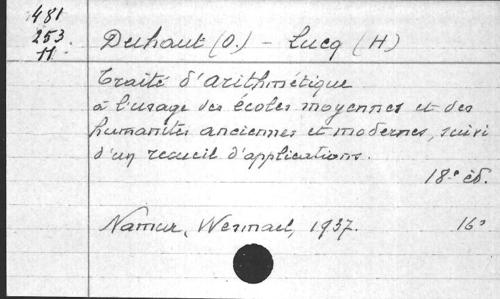 481
253.
11.
Duhaut (O.) - Lucq (H)
Traité d'arithmétique
à l'usage des écoles moyennes et des
humanités anciennes et modernes, suivi
d'un recueil d'applications.
18.e éd.
Namur, Wesmael, 1937. 16°